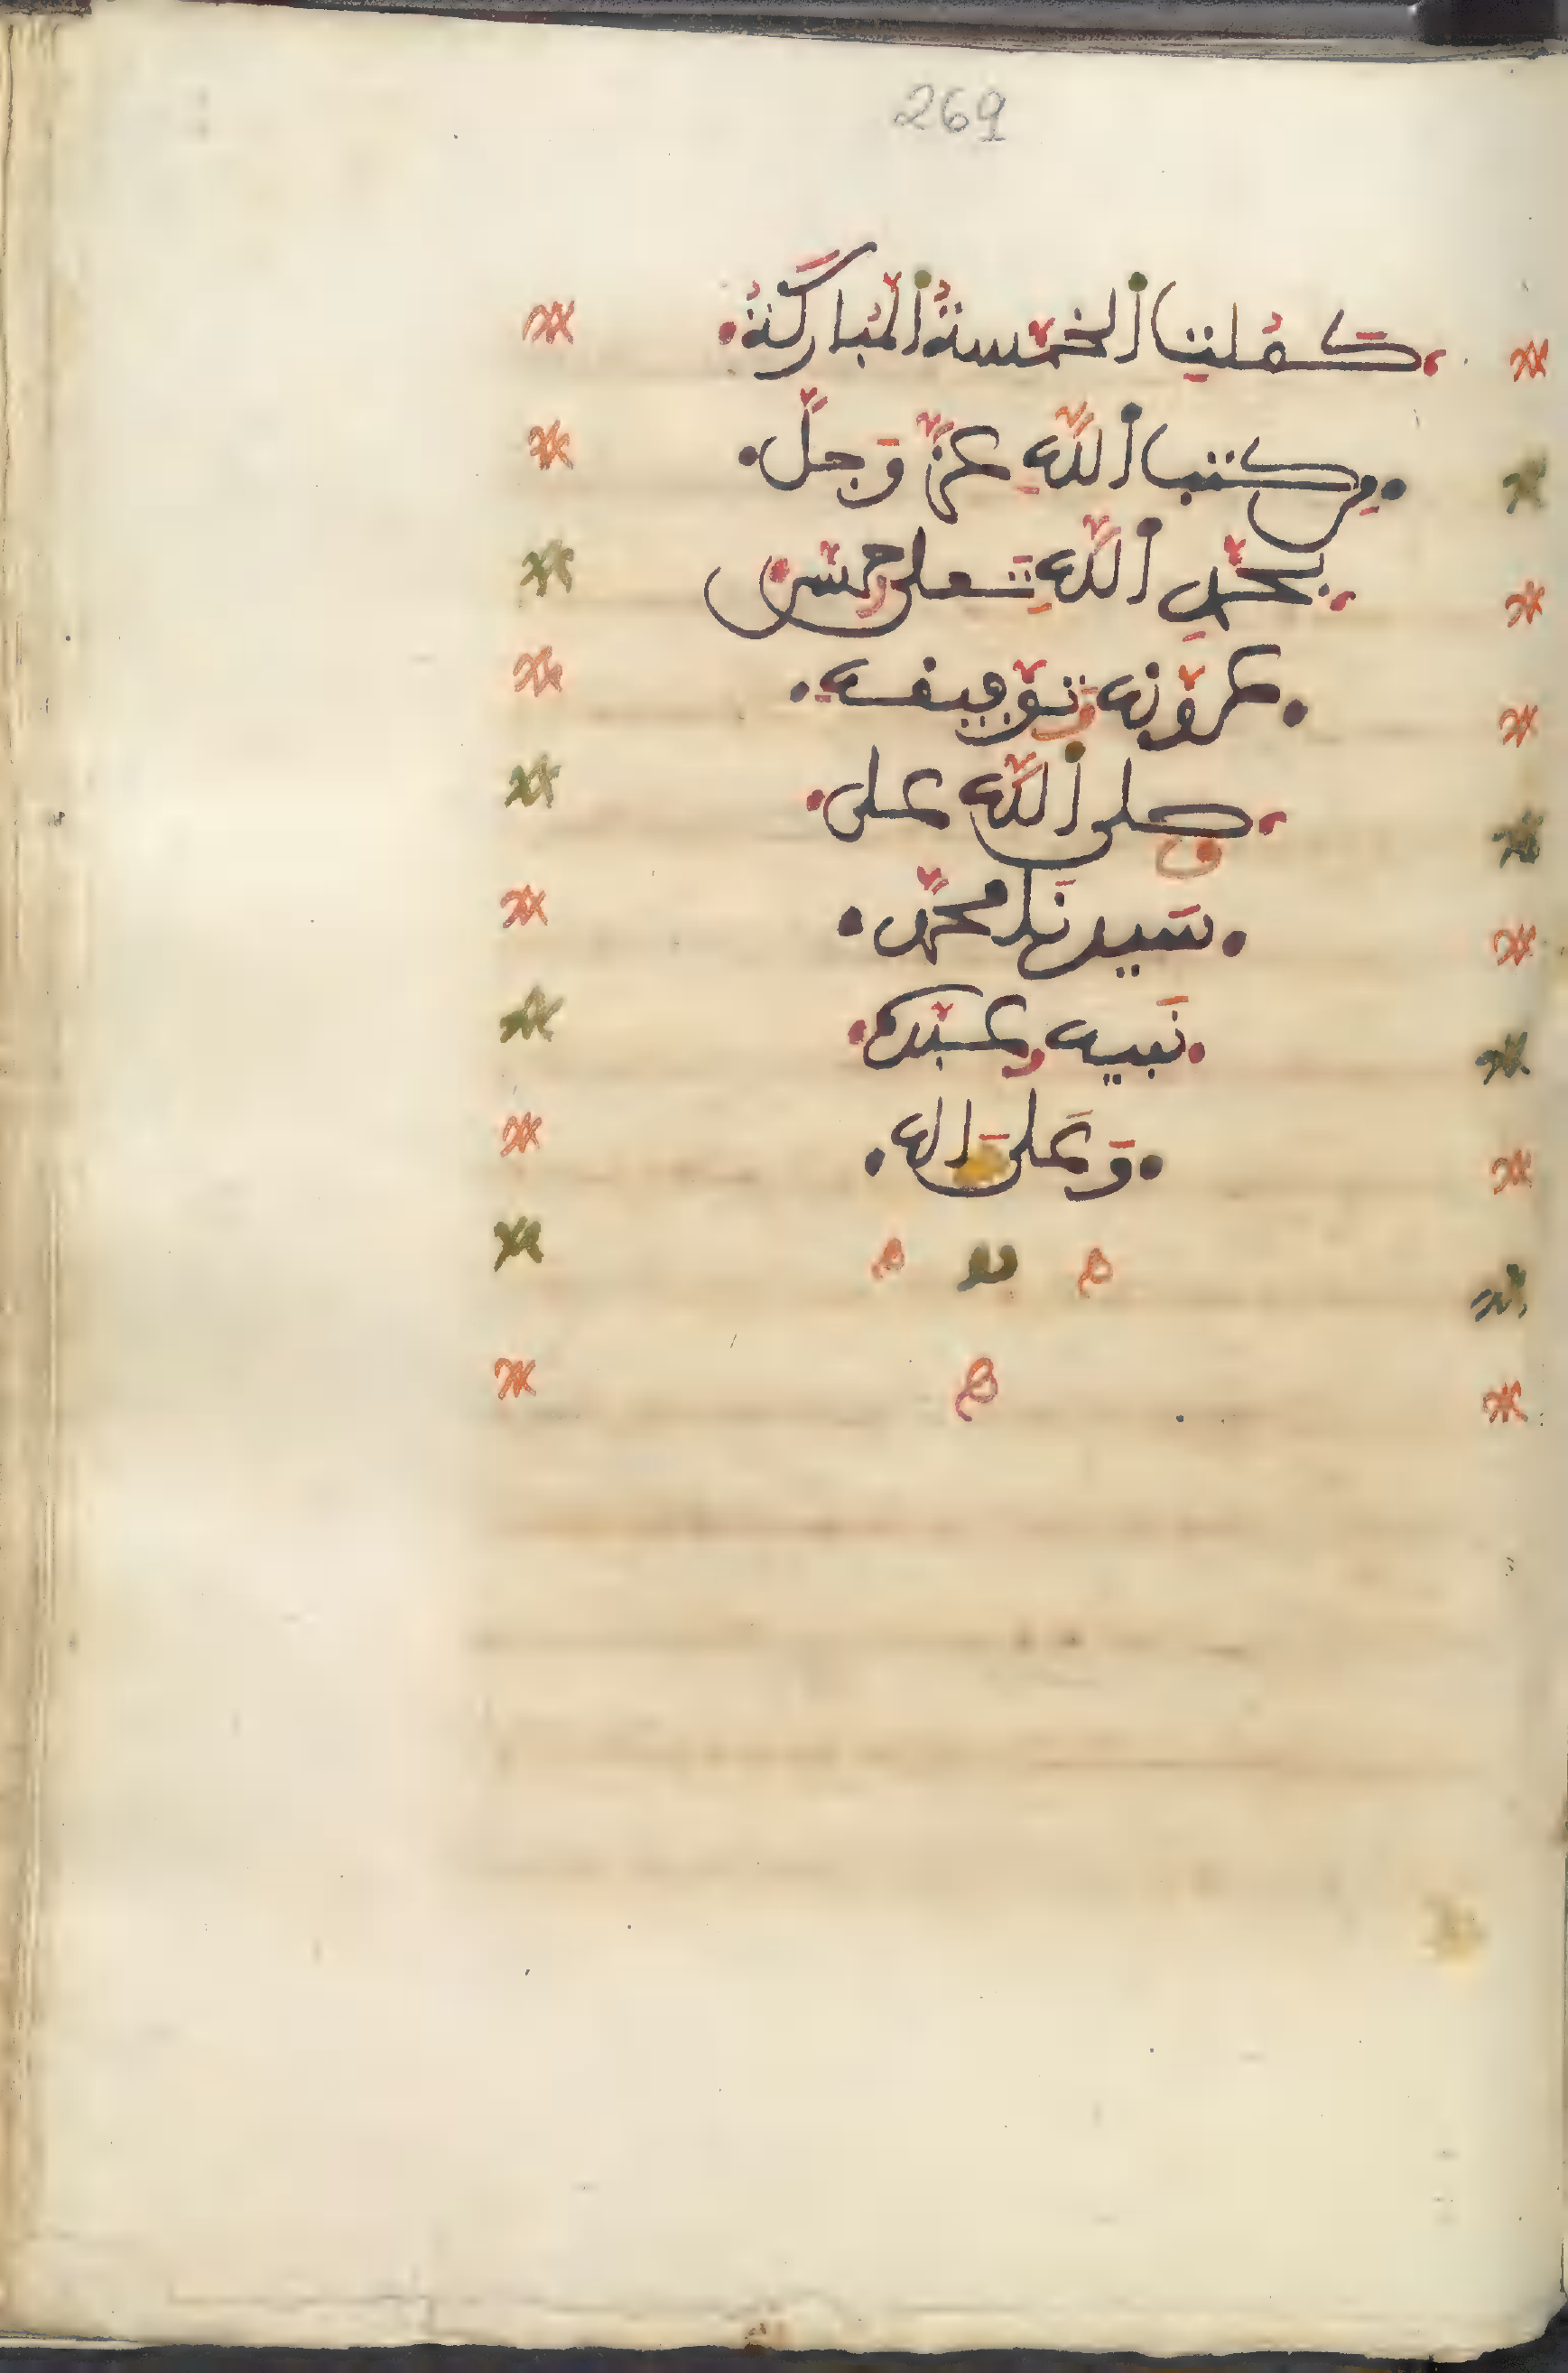 269
كملت الخمسة المباركة
من كتب الله عز وجل
بحمد الله تعلى وحسن
عونه وتوفيفه
وصلى الله على
سيدنا محمد
نبيه وعبده
وَعَلى اله